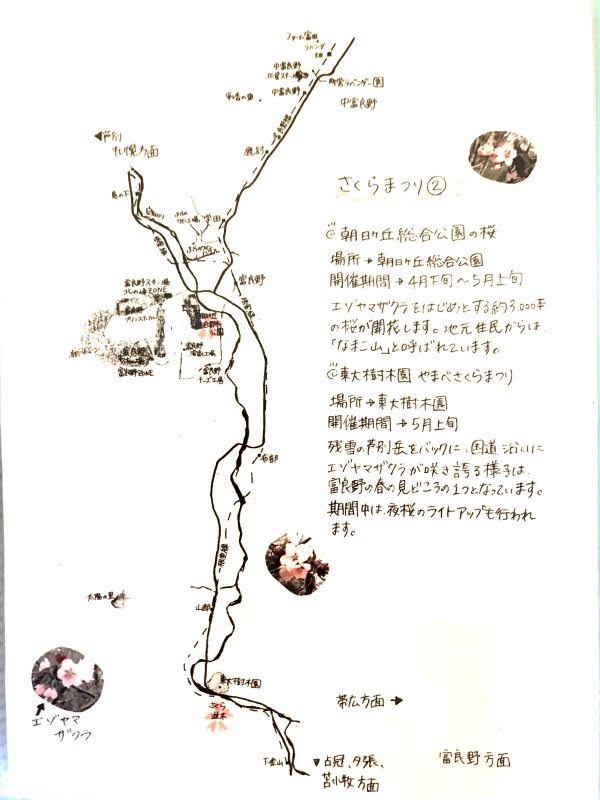 ファーム富田
ラベンダー
中富良野
北星スキー場
町営ラベンダー園
中富良野
中富良野
鹿討
◀芦別
札幌方面
島の下
学田
富良野
富良野スキー場
北の峰ZONE
富良野
プリンスホテル
公園
富良野ZONE
富良野
チーズ工房
布部
太陽の里
山部
東大樹木園
さくら
並木
下金山
エゾヤマ
ザクラ
帯広方面→
▼占冠、夕張、
苫小牧方面
富良野方面
さくらまつり②
@朝日ヶ丘総合公園の桜
場所→朝日ヶ丘総合公園
開催期間→4月下旬～5月上旬
エゾヤマザクラをはじめとする約3,000本
の桜が開花します。地元住民からは、
「なまこ山」と呼ばれています。
@東大樹木園 やまべさくらまつり
場所→東大樹木園
開催期間→5月上旬
残雪の芦別岳をバックに、国道沿いに
エゾヤマザクラが咲き誇る様子は、
富良野の春の見どころの1つとなっています。
期間中は、夜桜のライトアップも行われ
ます。